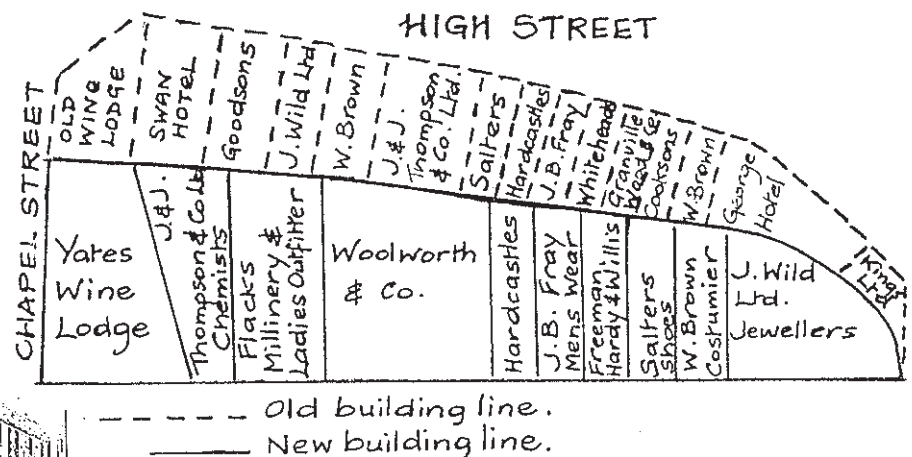 HIGH STREET
CHAPEL STREET
OLD
WINE
LODGE
SWAN
HOTEL
Goodsons
J. Wild Ltd
W. Brown
J. & J.
Thompson
& Co. Ltd.
Salters
Hardcastles
J. B. Fray
Whiteheads
Granville
Wood & Co
Cooksons
W. Brown
George
Hotel
Kings
Ltd
Yates
Wine
Lodge
J. & J.
Thompson & Co Ltd
Chemists
Flacks
Millinery &
Ladies Outfitter
Woolworth
& Co.
Hardcastles
J. B. Fray
Mens Wear
Freeman
Hardy & Willis
Salters
Shoes
W. Brown
Costumier
J. Wild
Ltd.
Jewellers
Old building line.
New building line.